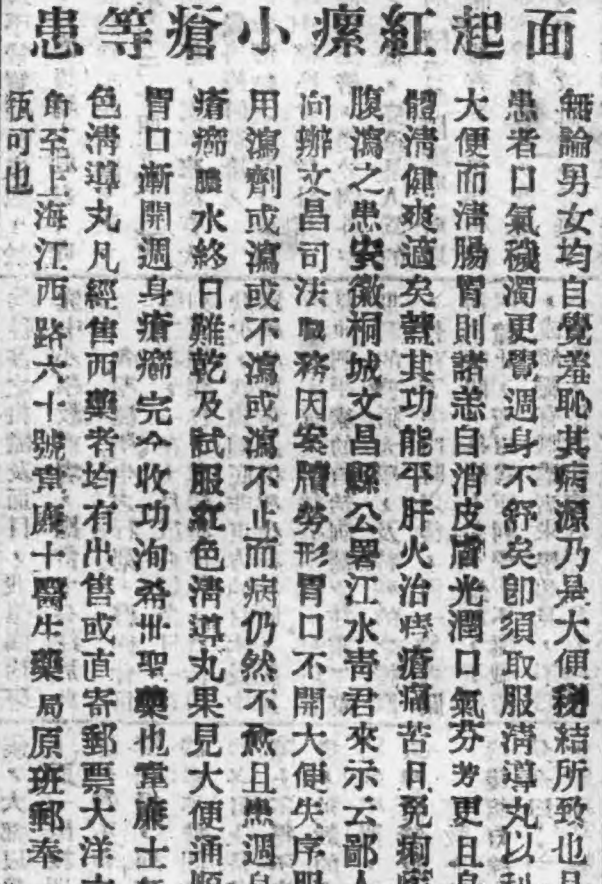 面起紅瘰小瘡等患
無論男女均自覺羞恥其病源乃是大便秘結所致也
患者口氣穢濁更覺週身不舒矣卽須取服淸導丸以利
大便而淸腸胃則諸恙自消皮膚光潤口氣芬芳更且
體淸健爽適矣蓋其功能平肝火治痔瘡痛苦且免痢
腹瀉之患安徽桐城文昌縣公署江水靑君來示云鄙人
向辦文昌司法職務因案牘勞形胃口不開大便失序服
用瀉劑或瀉或不瀉或瀉不止而病仍然不愈且患週身
瘡癤膿水終日難乾及試服紅色淸導丸果見大便通順
胃口漸開週身瘡癤完全收功洵希世聖藥也韋廉士
色淸導丸凡經售西藥者均有出售或直寄郵票大洋
角至上海江西路六十號韋廉士醫生藥局原班郵奉
瓶可也